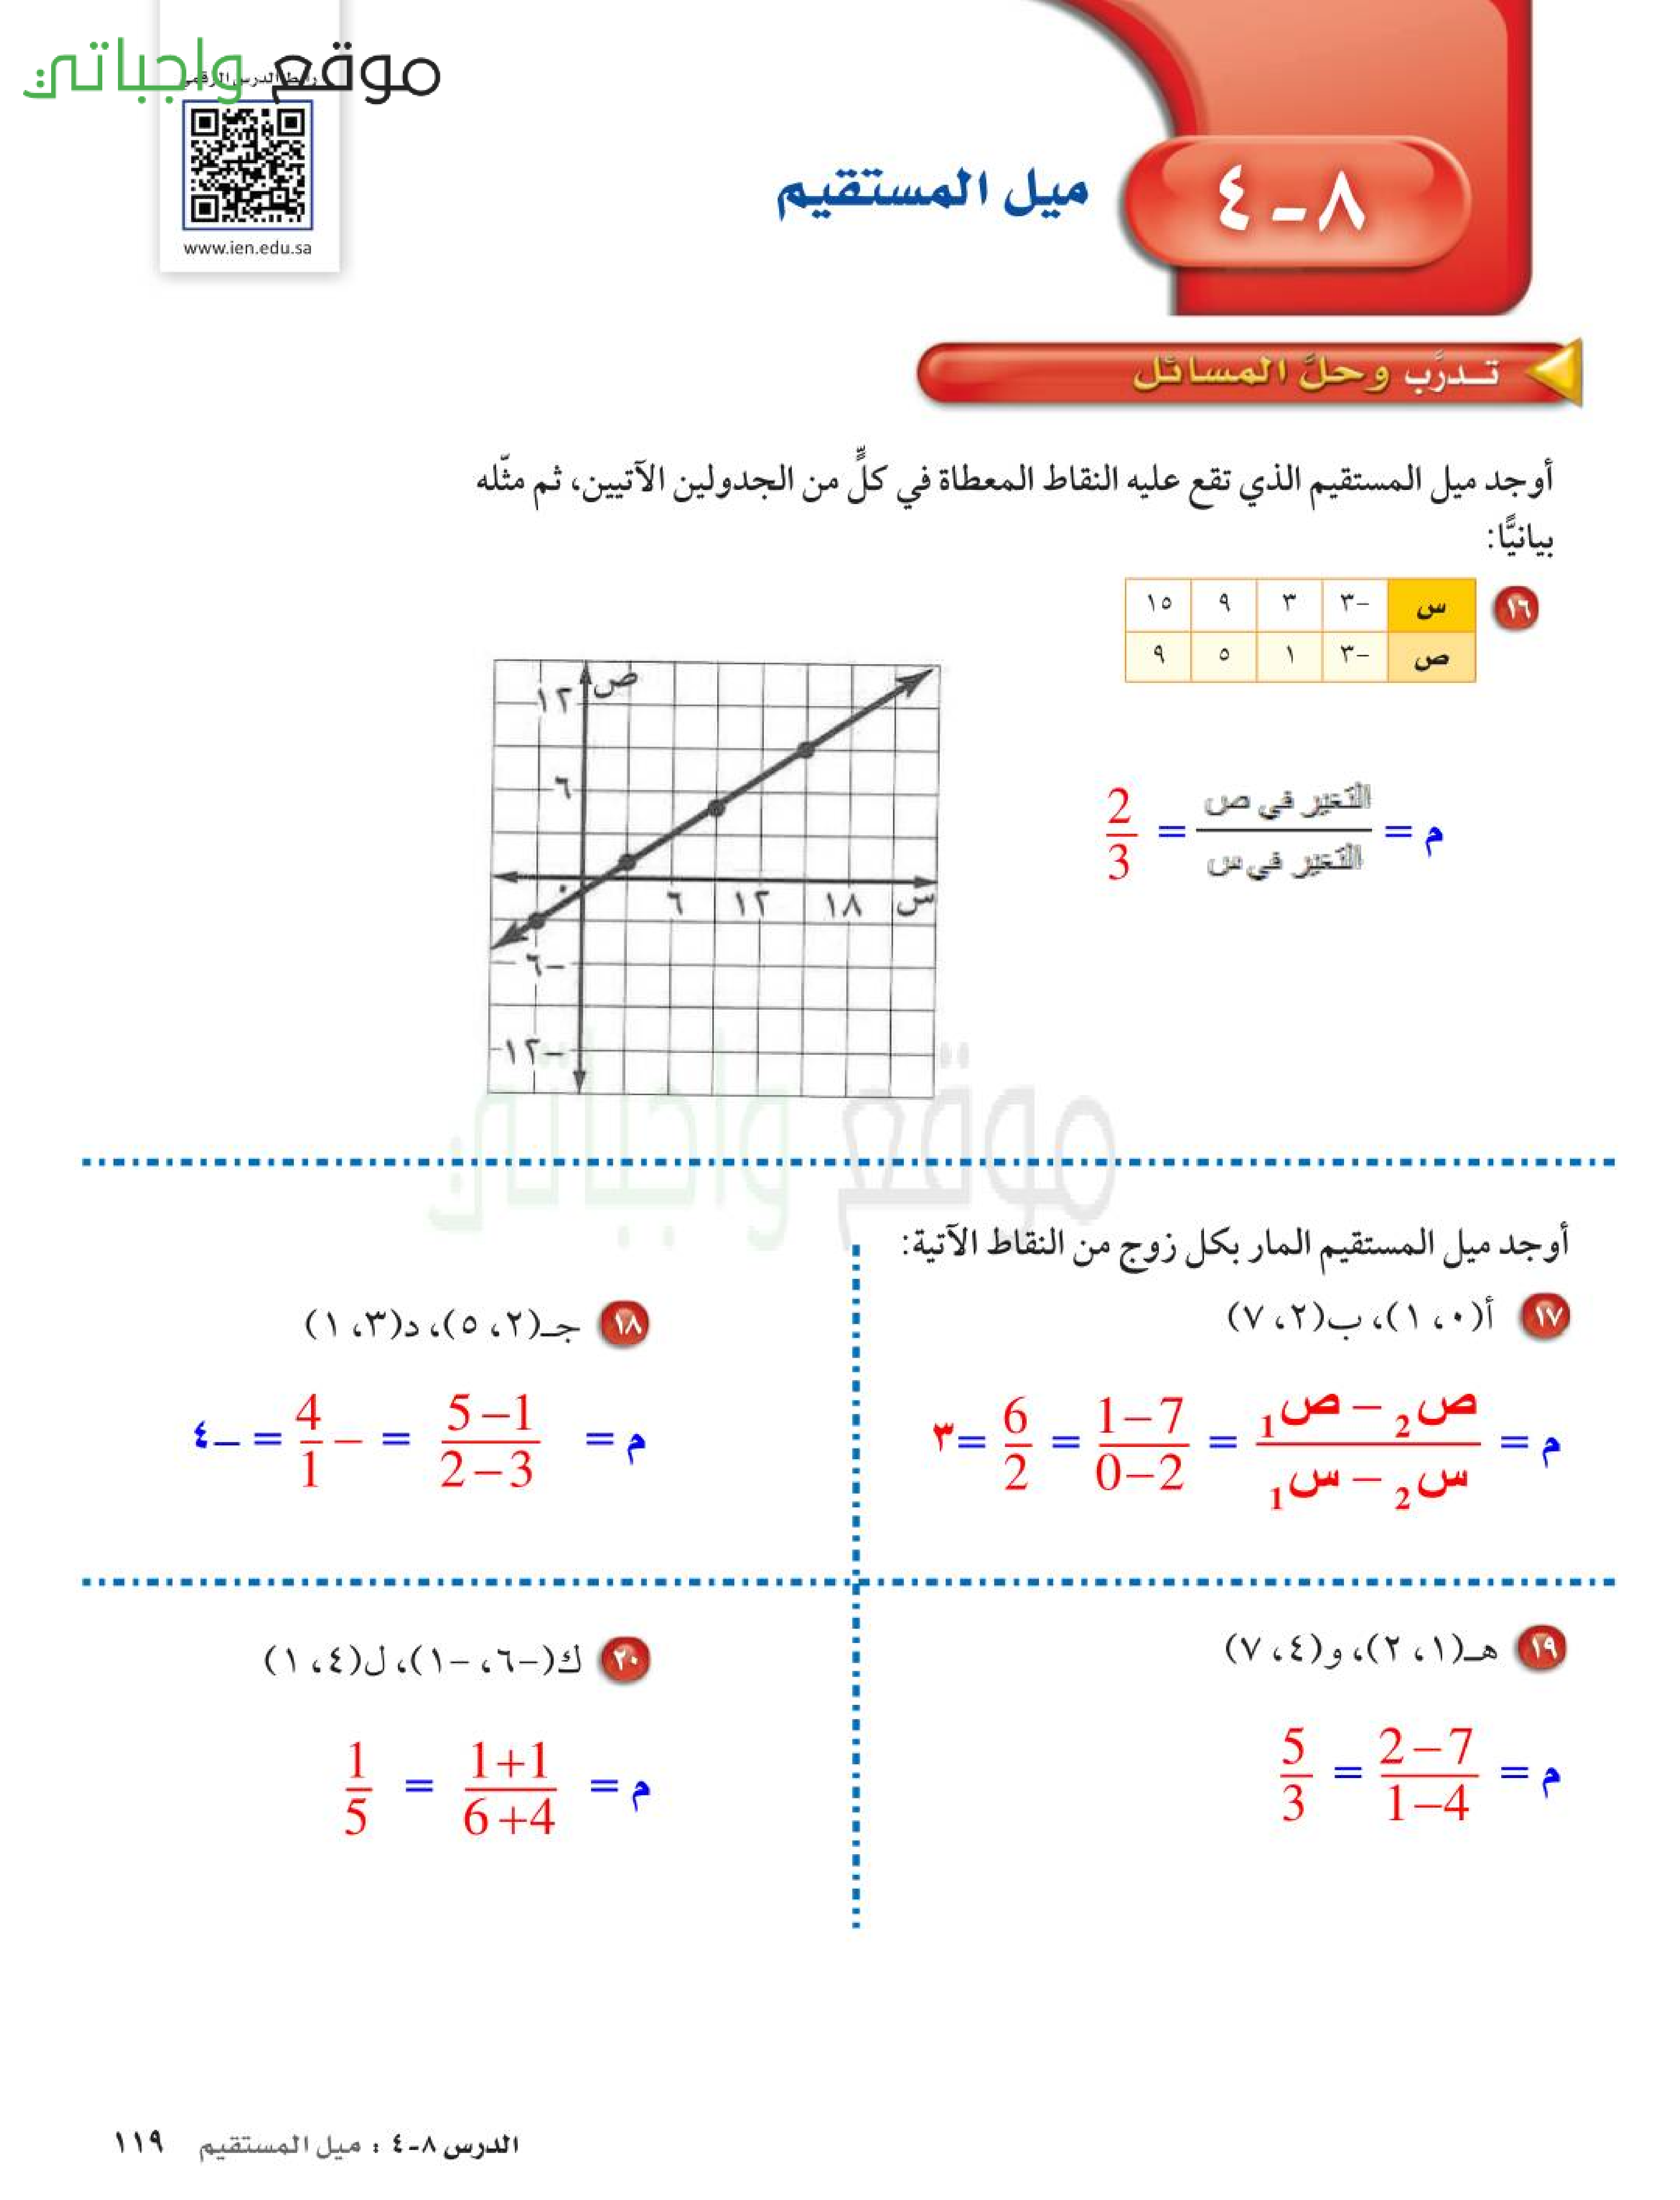 موقع واجباتي
رابط الدرس الرقمي
www.ien.edu.sa
٨-٤
ميل المستقيم
تـدرَّب وحلَّ المسائل
أوجد ميل المستقيم الذي تقع عليه النقاط المعطاة في كلٍّ من الجدولين الآتيين، ثم مثّله
بيانيًّا:
١٦
س -٣ ٣ ٩ ١٥
ص -٣ ١ ٥ ٩
م = التغير في ص / التغير في س = 2/3
ص
١٢
٦
٠ ٦ ١٢ ١٨ س
-٦
-١٢
موقع واجباتي
أوجد ميل المستقيم المار بكل زوج من النقاط الآتية:
١٧ أ(٠، ١)، ب(٢، ٧)
م = ص2 – ص1 / س2 – س1 = 1–7 / 0–2 = 6/2 = ٣
١٨ جـ(٢، ٥)، د(٣، ١)
م = 5–1 / 2–3 = – 4/1 = –٤
١٩ هـ(١، ٢)، و(٤، ٧)
م = 2–7 / 1–4 = 5/3
٢٠ ك(-٦، -١)، ل(٤، ١)
م = 1+1 / 6+4 = 1/5
الدرس ٨-٤ : ميل المستقيم ١١٩